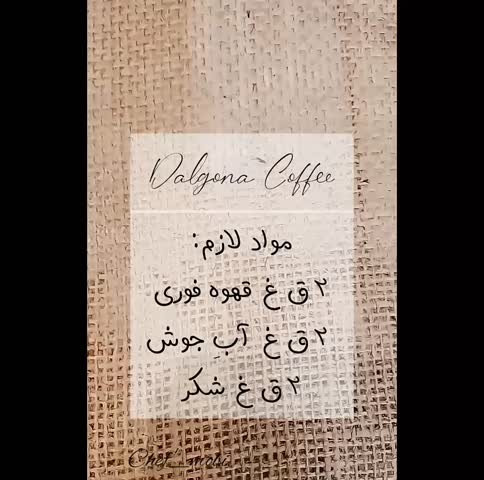 Dalgona Coffee
مواد لازم:
۲ ق غ قهوه فوری
۲ ق غ آبِ جوش
۲ ق غ شکر